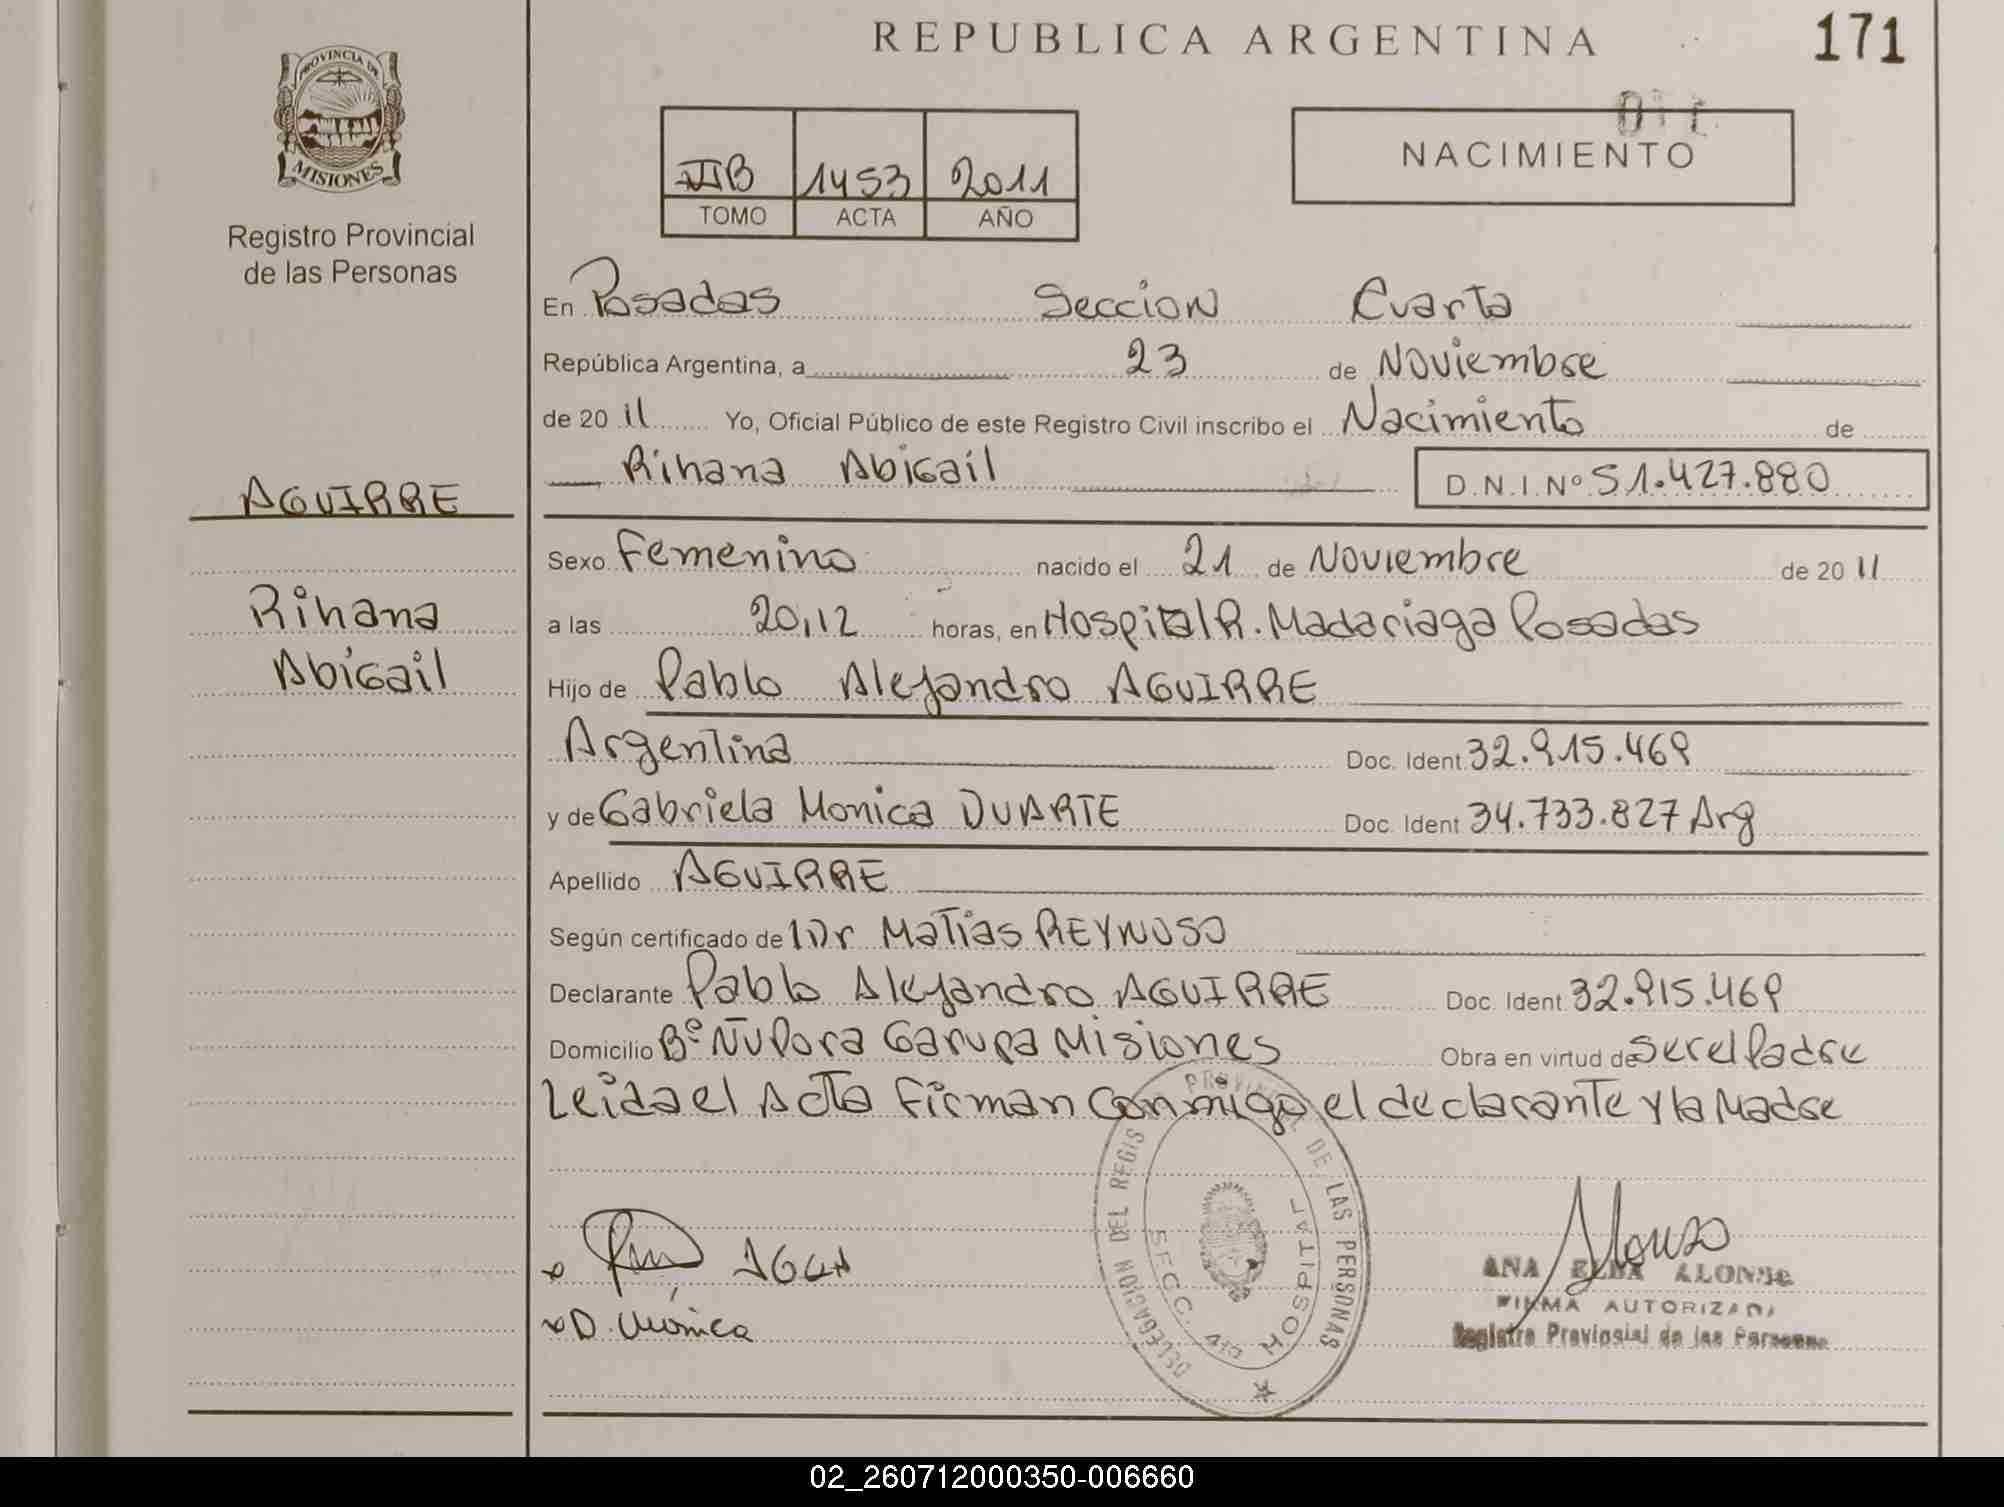 REPUBLICA ARGENTINA
171
PROVINCIA DE
MISIONES
Registro Provincial
de las Personas
AGUIRRE
Rihana
Abigail
IIB 1453 2011
TOMO ACTA AÑO
NACIMIENTO
En Posadas Seccion Cuarta
República Argentina, a 23 de Noviembre
de 20 11 Yo, Oficial Público de este Registro Civil inscribo el Nacimiento de
Rihana Abigail D.N.I. Nº 51.427.880
Sexo Femenino nacido el 21 de Noviembre de 20 11
a las 20,12 horas, en Hospital R. Madariaga Posadas
Hijo de Pablo Alejandro AGUIRRE
Argentina Doc. Ident. 32.915.469
y de Gabriela Monica DUARTE Doc. Ident 34.733.827 Arg
Apellido AGUIRRE
Según certificado de Dr Matias REYNOSO
Declarante Pablo Alejandro AGUIRRE Doc. Ident. 32.915.469
Domicilio Bº Ñu Pora Garupa Misiones Obra en virtud de ser el Padre
Leida el Acta Firman conmigo el declarante y la Madre
D. Monica
DELEGACION DEL REGIS PROVINCIAL DE LAS PERSONAS
SECC. 4ta HOSPITAL
Alonso
ANA ELBA ALONSO
FIRMA AUTORIZADA
Registro Provincial de las Personas
02_260712000350-006660